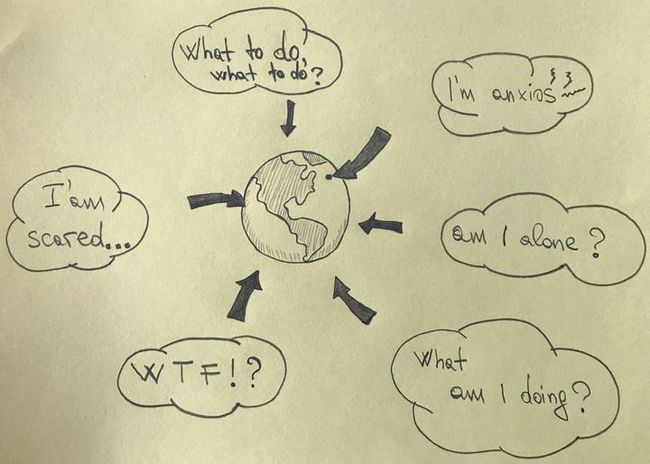 What to do,
what to do?
I'm anxios
I'am
scared...
am I alone?
WTF!?
What
am I doing?